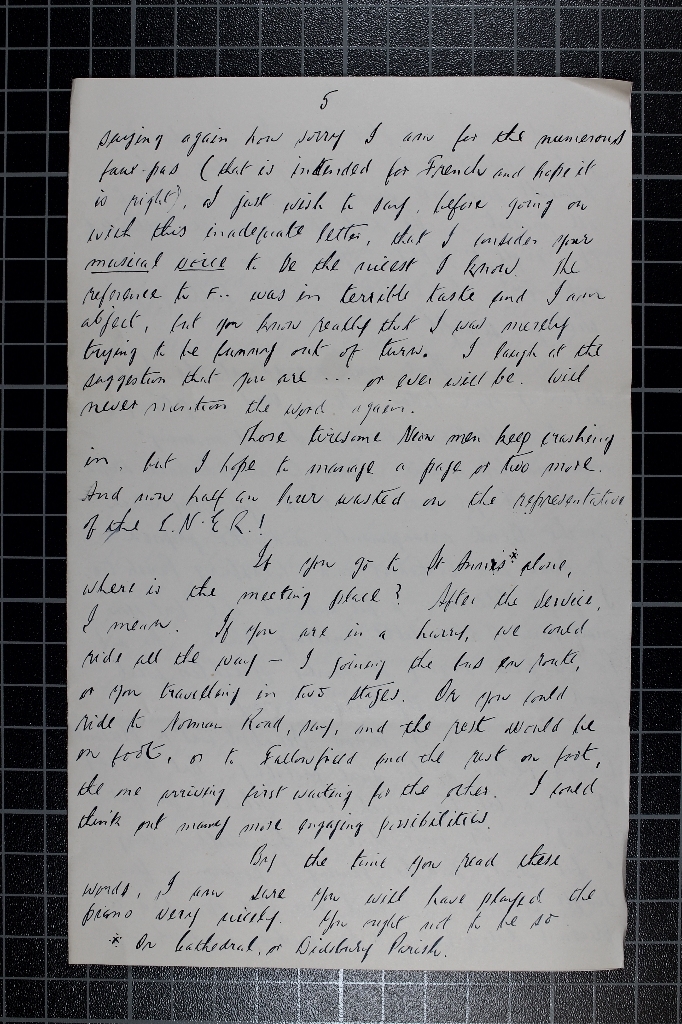 5
saying again how sorry I am for the numerous
faux-pas (that is intended for French and hope it
is right), I just wish to say, before going on
with this inadequate letter, that I consider your
musical voice to be the nicest I know. The
reference to F.. was in terrible taste and I am
abject, but you know really that I was merely
trying to be funny out of turn. I laugh at the
suggestion that you are ... or ever will be. Will
never mention the word again.
Those tiresome News men keep crashing
in, but I hope to manage a page or two more.
And now half an hour wasted on the representative
of the L.N.E.R.!
If you go to St Ann's* alone,
where is the meeting place? After the service,
I mean. If you are in a hurry, we could
ride all the way – I joining the bus en route,
or you travelling in two stages. Or you could
ride to Norman Road, say, and the rest would be
on foot, or to Fallowfield and the rest on foot,
the one arriving first waiting for the other. I could
think out many more engaging possibilities.
By the time you read these
words, I am sure you will have played the
piano very nicely. You ought not to be so
* Or Cathedral, or Didsbury Parish.